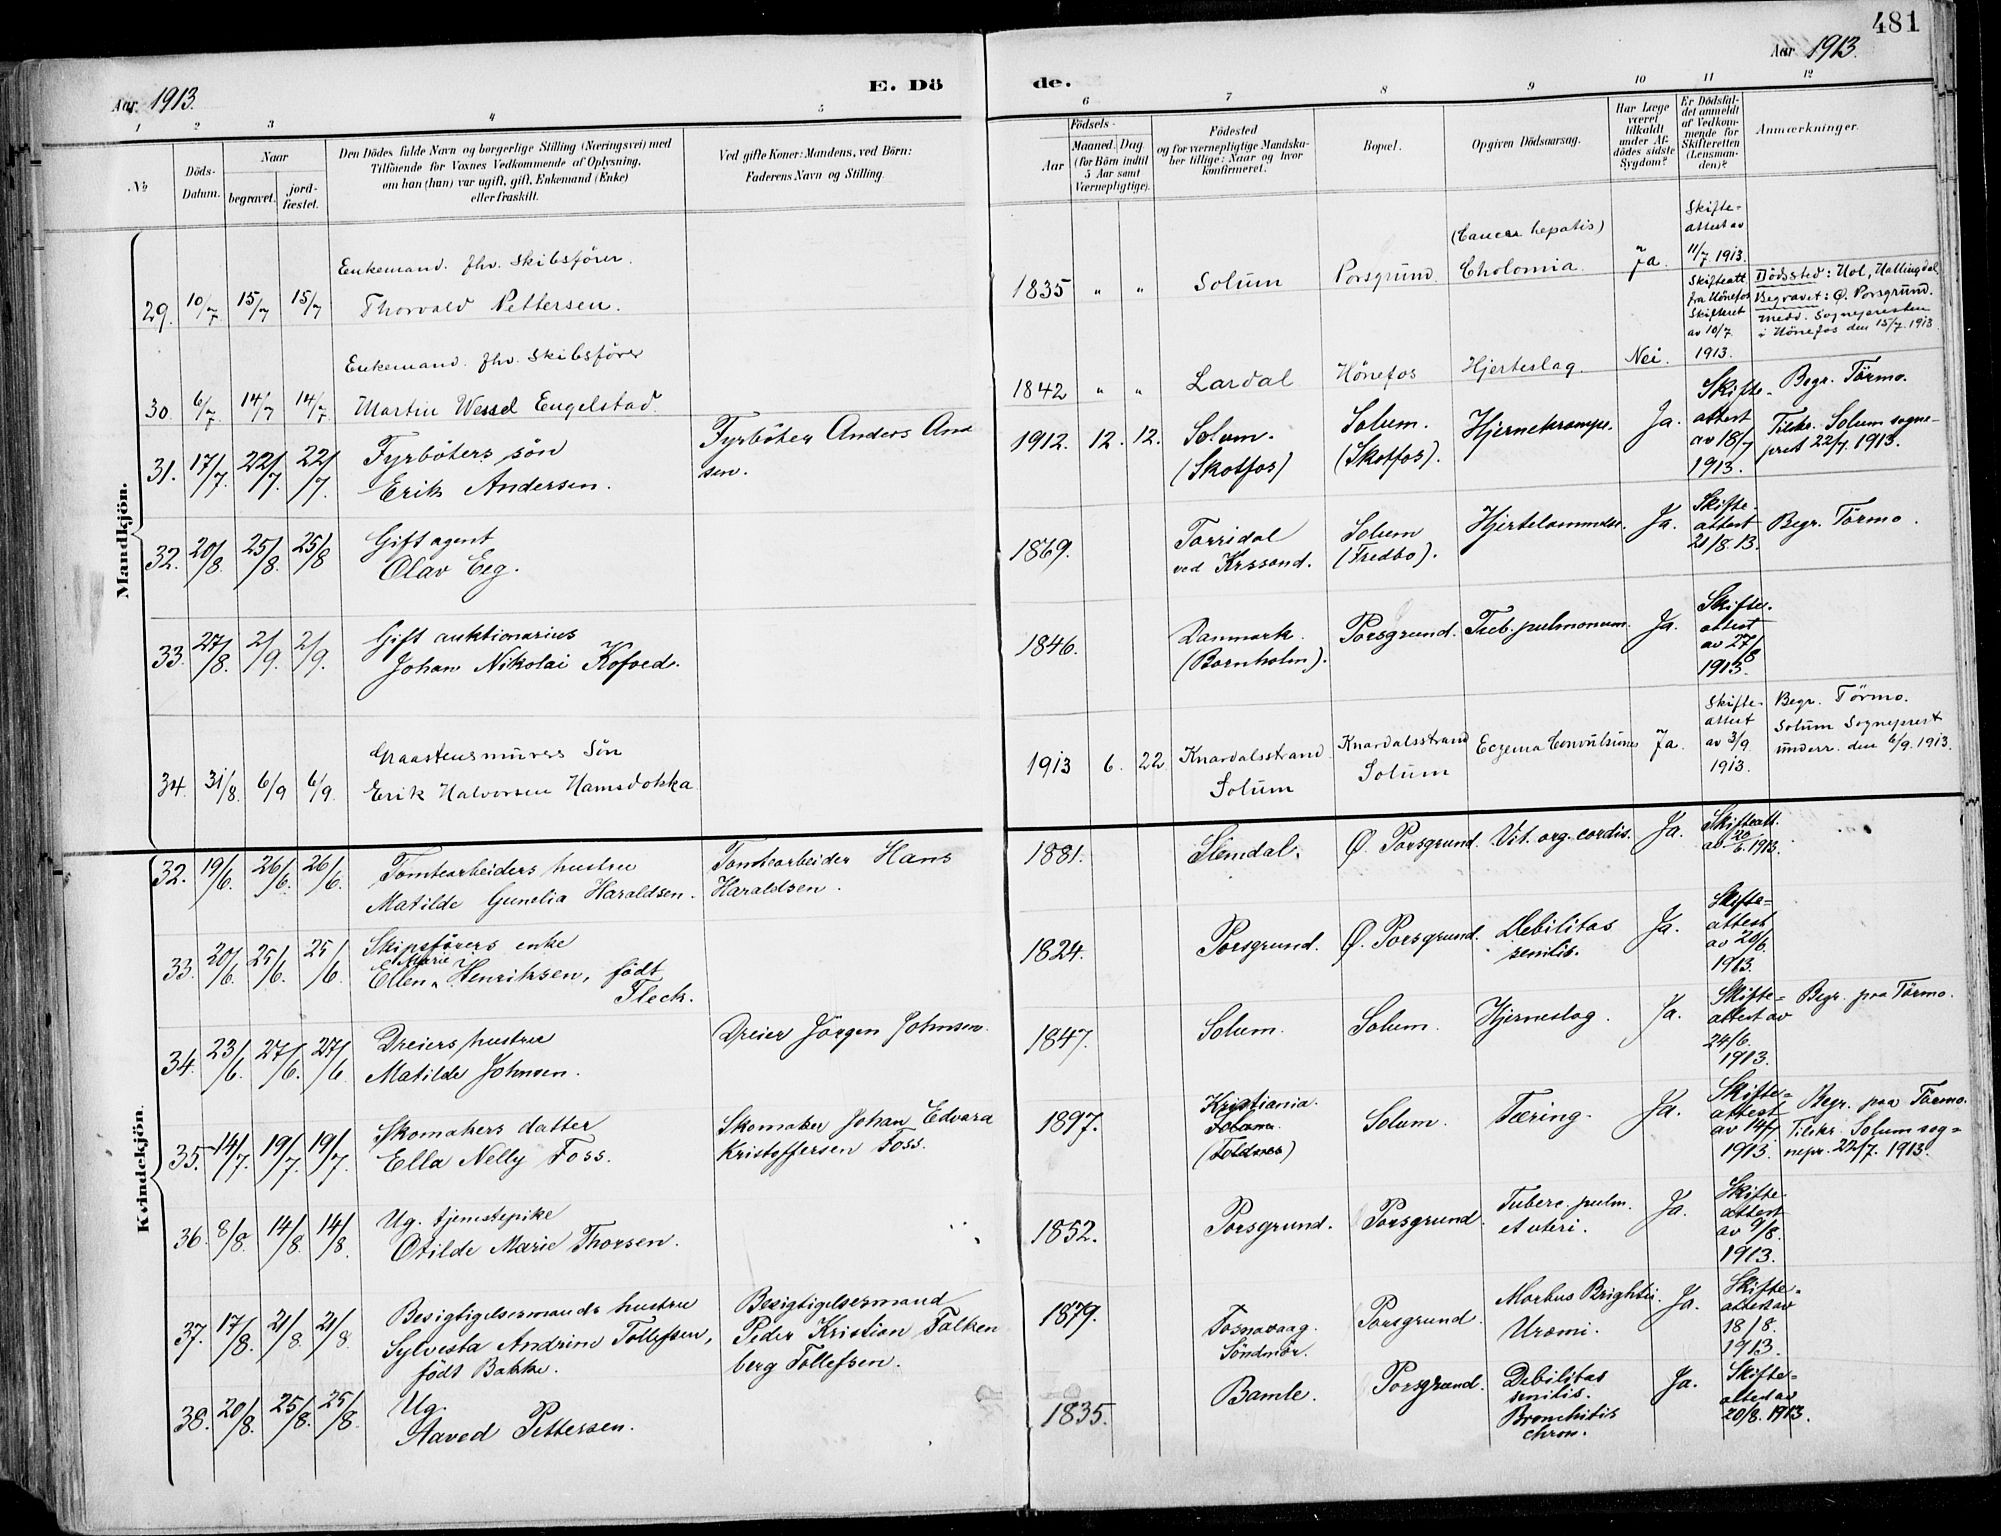 481
Aar 1913.
E. Dö
de.
Aar 1913.
1 2 3 4 5 6 7 8 9 10 11 12
No
Döds-
Datum.
Naar
begravet.
jord-
fæstet.
Den Dödes fulde Navn og borgerlige Stilling (Næringsvei) med
Tilföiende for Voxnes Vedkommende af Oplysning,
om han (hun) var ugift, gift, Enkemand (Enke)
eller fraskilt.
Ved gifte Koner: Mandens, ved Börn:
Faderens Navn og Stilling.
Födsels-
Aar
Maaned. Dag
(for Börn indtil
5 Aar samt
Værnepligtige).
Födested
og for værnepligtige Mandska-
ber tillige: Naar og hvor
konfirmeret.
Bopæl.
Opgiven Dödsaarsag.
Har Læge
været
tilkaldt
under Af-
dödes sidste
Sygdom?
Er Dödsfal-
det anmeldt
af Vedkom-
mende for
Skifteretten
(Lensman-
den)?
Anmærkninger.
Mandkjön.
29. 10/7 15/7 15/7
Enkemand. fhv. Skibsförer.
Thorvald Pettersen.
1835 " " Solum Porsgrund.
(Cancer hepatis)
Cholomia. Ja.
Skifte-
attest av
11/7 1913.
30. 6/7 14/7 14/7.
Enkemand. fhv. Skibsförer
Martin Wessel Engelstad.
1842 " " Lardal Hönefos Hjerteslag. Nei.
Skifteatt
fra Hönefos
Skifteret
av 10/7
1913.
Dödssted: Hol, Hallingdal
Begravet: Ö. Porsgrund.
Medd. Sognepresten
i Hönefos den 15/7. 1913
Begr. Törmo.
31. 17/7. 22/7. 22/7.
Fyrböters sön
Erik Andersen.
Fyrböter Anders An
sen.
1912. 12. 12. Solum.
(Skotfos)
Solum.
(Skotfos).
Hjernekrampe. Ja.
Skifte-
attest
av 18/7
1913.
Tilskr. Solum sogne-
prest 22/7 1913.
32. 20/8. 25/8. 25/8
Gift agent
Olav Eeg.
1869. Torridal
ved Krssand.
Solum
(Fredbo).
Hjertelammelse. Ja.
Skifte-
attest
21/8. 13.
Begr. Törmo.
33. 27/8. 2/9. 2/9.
Gift auktionarius
Johan Nikolai Kofoed.
1846. Danmark.
(Bornholm).
Porsgrund. Tub. pulmonum. Ja.
Skifte-
attest
av 27/8
1913.
34. 31/8. 6/9 6/9.
Graastensmurers Sön
Erik Halvorsen Hamsdokka
1913 6. 22. Knardalsstrand
Solum
Knardalsstrand
Solum
Eczema Convulsiones Ja.
Skifte-
attest
av 3/9.
1913.
Begr. Törmo.
Solum Sogneprest
underr. den 6/9. 1913.
Kvindekjön.
32. 19/6. 26/6. 26/6.
Tomtearbeiders hustru
Matilde Gunelia Haraldsen.
Tomtearbeider Hans
Haraldsen.
1881. Slemdal. Ö. Porsgrund. Vit. org. cordis. Ja.
Skifteatt.
av 20/6. 1913.
33. 20/6. 25/6. 25/6.
Skipsförers enke
Ellen Marie Henriksen, födt
Fleck.
1824. Porsgrund. Ö. Porsgrund. Debilitas
senilis. Ja.
Skifte-
attest
av 20/6.
1913.
34. 23/6. 27/6. 27/6.
Dreiers hustru
Matilde Johnsen.
Dreier Jörgen Johnsen.
1847. Solum. Solum. Hjerneslag. Ja.
Skifte-
attest av
24/6.
1913.
Begr. paa Törmo.
35. 14/7. 19/7. 19/7.
Skomakers datter
Ella Nelly Foss.
Skomaker Johan Edvard
Kristoffersen Foss.
1897. Kristiania.
Solum. Tæring. Ja.
Skifte-
attest
av 14/7.
1913.
Begr. paa Törmo.
Tilskr. Solum sog-
nepr. 22/7. 1913.
36. 8/8. 14/8. 14/8.
Ug. tjenestepike
Otilde Marie Thorsen.
1852. Porsgrund. Porsgrund. Tuberc. pulm.
et uteri. Ja.
Skifte-
attest
av 9/8.
1913.
37. 17/8. 21/8. 21/8.
Besigtigelsesmands hustru
Sylvesta Andrine Tollefsen,
födt Bakke.
Besigtigelsesmand
Peder Kristian Falken
berg Tollefsen.
1879. Fosnavaag.
Söndmör.
Porsgrund. Morbus Brightii.
Uræmi. Ja.
Skifte-
attest av
18/8.
1913.
38. 20/8. 25/8. 25/8.
Ug.
Aaved Pettersen.
1835. Bamle. Porsgrund. Debilitas
senilis.
Bronchitis
chron. Ja.
Skifte-
attest av
20/8. 1913.